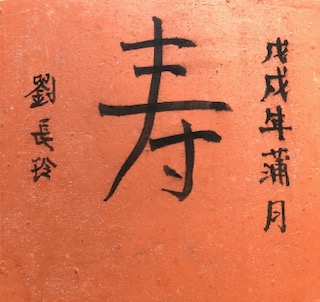 戊戌年蒲月
寿
劉長玲